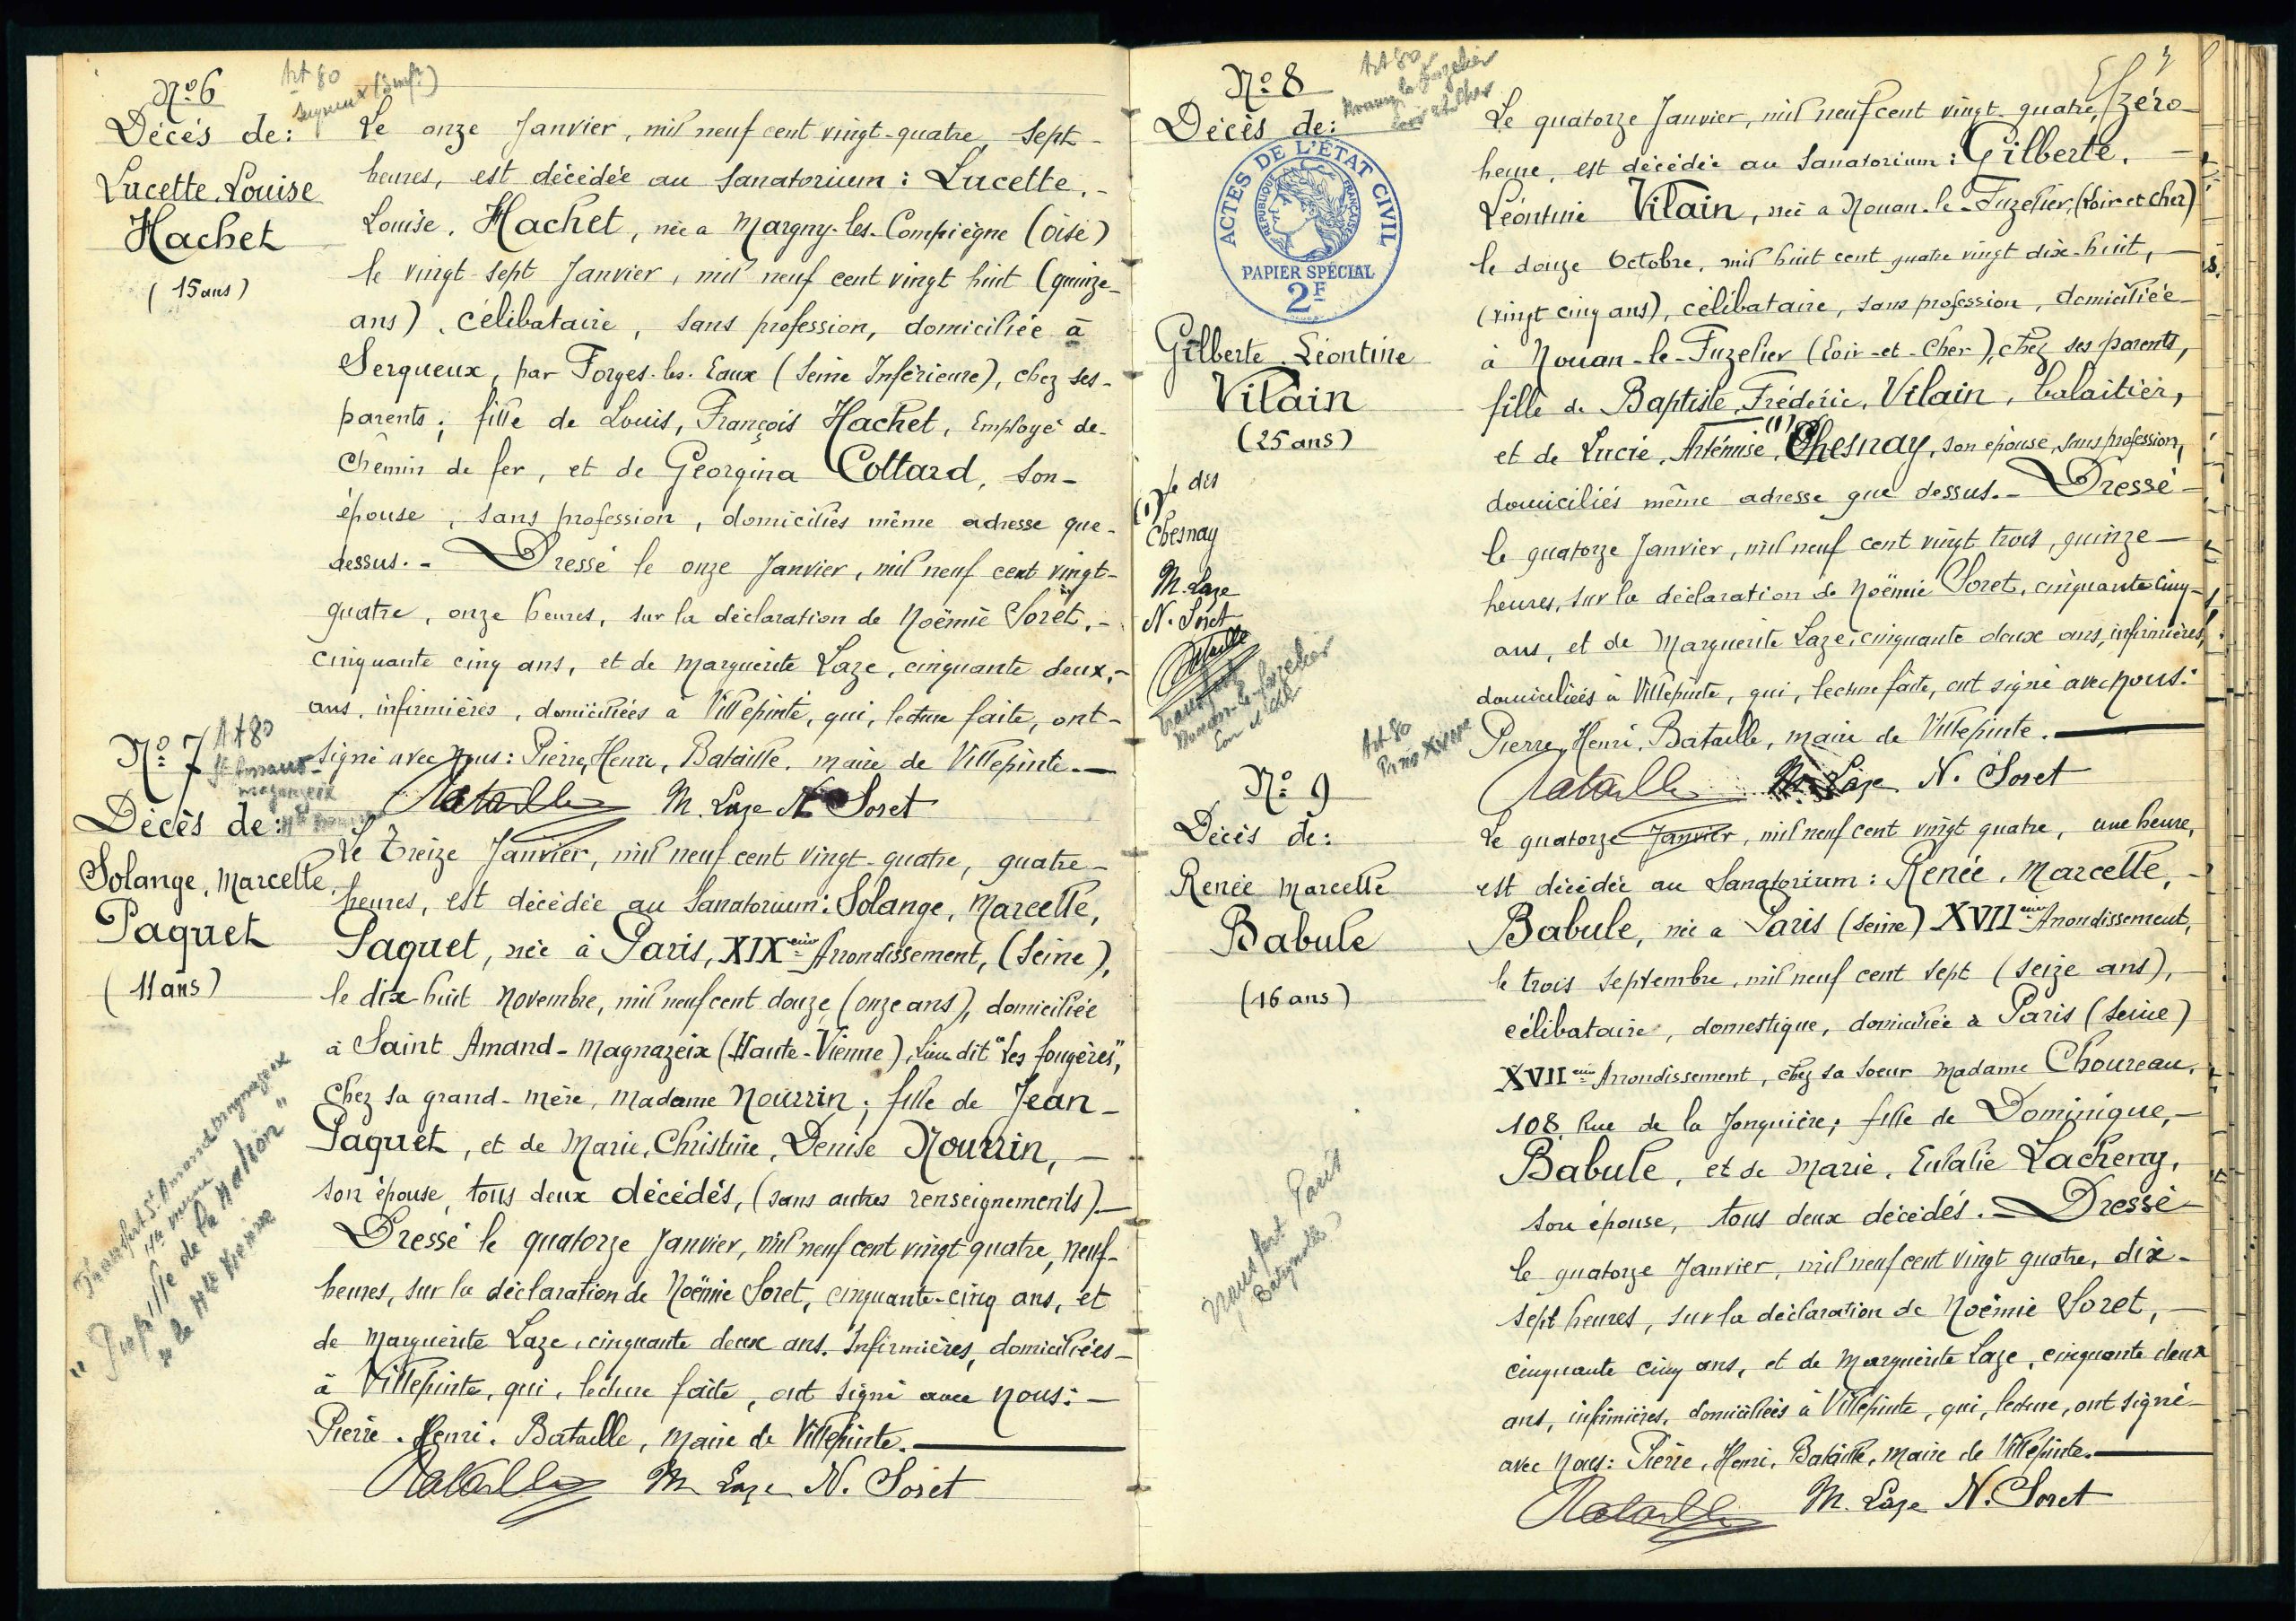 Nº 6
Art 80
Décès de:
Lucette, Louise
Hachet
(15 ans)
Le onze Janvier, mil neuf cent vingt-quatre, sept-
heures, est décédée au Sanatorium : Lucette,-
Louise, Hachet, née à Margny-les-Compiègne (Oise)
le vingt-sept Janvier, mil neuf cent vingt huit (quinze-
ans), célibataire, sans profession, domiciliée à
Serqueux, par Forges-les-Eaux (Seine Inférieure), chez ses-
parents; fille de Louis, François Hachet, Employé de-
chemin de fer, et de Georgina Cottard, son-
épouse, sans profession, domiciliés même adresse que-
dessus.- Dressé le onze Janvier, mil neuf cent vingt-
quatre, onze heures, sur la déclaration de Noëmie Soret,-
cinquante cinq ans, et de Marguerite Laze, cinquante deux-
ans, infirmières, domiciliées à Villepinte, qui, lecture faite, ont-
signé avec nous: Pierre, Henri, Bataille, maire de Villepinte.-
Bataille M. Laze N. Soret
Nº 7
Art 80
Décès de:
Solange, Marcelle,
Paquet
(11 ans)
Transfert St Amand Magnazeix
Hte Vienne
"Pupille de la Nation"
de la Hte Vienne
Le treize Janvier, mil neuf cent vingt-quatre, quatre-
heures, est décédée au Sanatorium: Solange, Marcelle,
Paquet, née à Paris, XIXème Arrondissement, (Seine),
le dix huit Novembre, mil neuf cent douze (onze ans), domiciliée
à Saint Amand-Magnazeix (Haute-Vienne), Lieu dit "Les fougères",
chez sa grand-mère, Madame Nourrin; fille de Jean-
Paquet, et de Marie, Christine, Denise Nourrin,-
son épouse, tous deux décédés, (sans autres renseignements).-
Dressé le quatorze Janvier, mil neuf cent vingt quatre, neuf-
heures, sur la déclaration de Noëmie Soret, cinquante-cinq ans, et
de Marguerite Laze, cinquante deux ans. Infirmières, domiciliées-
à Villepinte, qui, lecture faite, ont signé avec nous:-
Pierre, Henri, Bataille, Maire de Villepinte.-
Bataille M. Laze N. Soret
Nº 8
Art 80
Nouan le Fuzelier
Loir et Cher
Décès de:
ACTES DE L'ÉTAT CIVIL
RÉPUBLIQUE FRANÇAISE
PAPIER SPÉCIAL
2F
Gilberte, Léontine
Vilain
(25 ans)
Je dis
(1)
Chesnay
M. Laze
N. Soret
Bataille
Transfert
Nouan-le-Fuzelier
Loir et Cher
Le quatorze Janvier, mil neuf cent vingt-quatre, zéro-
heure, est décédée au Sanatorium: Gilberte,-
Léontine Vilain, née à Nouan-le-Fuzelier, (Loir et Cher)
le douze Octobre, mil huit cent quatre vingt dix-huit,-
(vingt cinq ans), célibataire, sans profession, domiciliée-
à Nouan-le-Fuzelier (Loir-et-Cher), chez ses parents,
fille de Baptiste, Frédéric, Vilain, balaitier,
et de Lucie, Artémise, (1) Chesnay, son épouse, sans profession,
domiciliés même adresse que dessus.- Dressé-
le quatorze Janvier, mil neuf cent vingt trois, quinze-
heures, sur la déclaration de Noëmie Soret, cinquante cinq-
ans, et de Marguerite Laze, cinquante deux ans, infirmières,
domiciliées à Villepinte, qui, lecture faite, ont signé avec nous:
Pierre, Henri, Bataille, maire de Villepinte.-
Bataille M. Laze N. Soret
Nº 9
Art 80
Paris XVIIème
Décès de:
Renée Marcelle
Babule
(16 ans)
Transfert Paris
Batignolles
Le quatorze Janvier, mil neuf cent vingt quatre, une heure,
est décédée au Sanatorium: Renée, Marcelle,-
Babule, née à Paris (Seine) XVIIème Arrondissement,
le trois Septembre, mil neuf cent sept (seize ans),-
célibataire, domestique, domiciliée à Paris (Seine)
XVIIème Arrondissement, chez sa soeur Madame Choureau,
108, Rue de la Jonquière; fille de Dominique,-
Babule, et de Marie, Eulalie Lacheny,
son épouse, tous deux décédés.- Dressé-
le quatorze Janvier, mil neuf cent vingt quatre, dix-
sept heures, sur la déclaration de Noémie Soret,-
cinquante cinq ans, et de Marguerite Laze, cinquante deux
ans, infirmières, domiciliées à Villepinte, qui, lecture, ont signé-
avec nous: Pierre, Henri, Bataille, Maire de Villepinte.-
Bataille M. Laze N. Soret